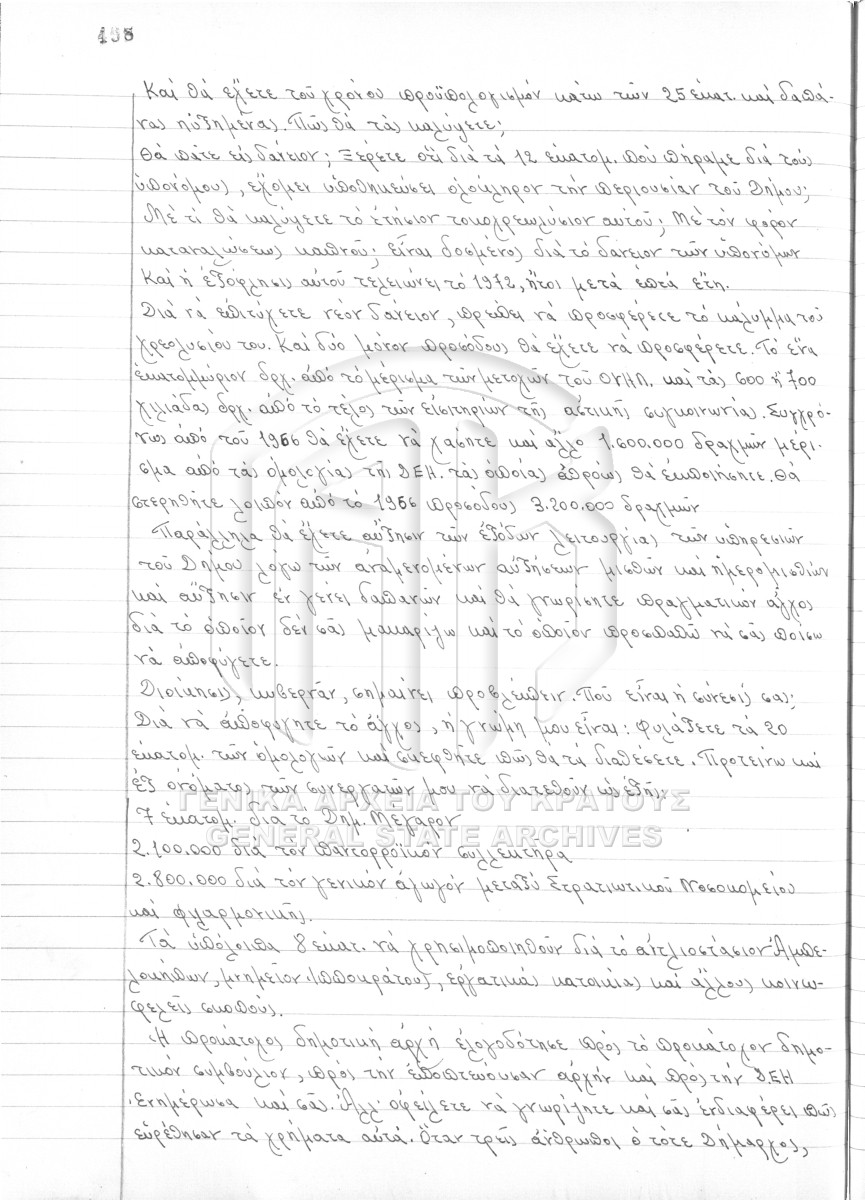 198
Καὶ θὰ ἔχετε τοῦ χρόνου προϋπολογισμόν κάτω τῶν 25 ἑκατ. καὶ δαπά-
νας ηὐξημένας. Πῶς θὰ τὰς καλύψετε;
Θὰ πᾶτε εἰς δάνειον; Ξέρετε ὅτι διὰ τὰ 12 ἑκατομ. ποὺ πήραμε διὰ τοὺς
ὑπονόμους, ἔχομεν ὑποθηκεύσει ὁλόκληρον τὴν περιουσίαν τοῦ Δήμου;
Μὲ τί θὰ καλύψετε τὸ ἐτήσιον τοκοχρεωλύσιον αὐτοῦ; Μὲ τὸν φόρον
καταναλώσεως καπνοῦ; εἶναι δοσμένος διὰ τὸ δάνειον τῶν ὑπονόμων
Καὶ ἡ ἐξόφλησις αὐτοῦ τελειώνει τὸ 1972, ἤτοι μετὰ ἑπτὰ ἔτη.
Διὰ νὰ ἐπιτύχετε νέον δάνειον, πρέπει νὰ προσφέρεσε τὸ κάλυμμα τοῦ
χρεολυσίου του. Καὶ δύο μόνον προσόδους θὰ ἔχετε νὰ προσφέρετε. Τὸ ἕνα
ἑκατομμύριον δρχ. ἀπὸ τὸ μέρισμα τῶν μετοχῶν τοῦ ΟΥΗΛ. καὶ τὰς 600 ἢ 700
χιλιάδας δρχ. ἀπὸ τὸ τέλος τῶν εἰσιτηρίων τῆς ἀστικῆς συγκοινωνίας. Συγχρό-
νως ἀπὸ τοῦ 1966 θὰ ἔχετε νὰ χάσητε καὶ ἄλλο 1.600.000 δραχμῶν μέρι-
σμα ἀπὸ τὰς ὁμολογίας τῆς ΔΕΗ. τὰς ὁποίας ἀπρόως θὰ ἐκποιήσητε. Θὰ
στερηθῆτε λοιπὸν ἀπὸ τὸ 1966 προσόδους 3.200.000 δραχμῶν
Παράλληλα θὰ ἔχετε αὔξησιν τῶν ἐξόδων λειτουργίας τῶν ὑπηρεσιῶν
τοῦ Δήμου λόγω τῶν ἀναμενομένων αὐξήσεων μισθῶν καὶ ἡμερομισθίων
καὶ αὔξησιν ἐν γένει δαπανῶν καὶ θὰ γνωρίσητε πραγματικὸν ἄγχος
διὰ τὸ ὁποῖον δὲν σᾶς μακαρίζω καὶ τὸ ὁποῖον προσπαθῶ νὰ σᾶς πείσω
νὰ ἀποφύγετε.
Διοίκησις, κυβερνᾶν, σημαίνει προβλέπειν. Ποῦ εἶναι ἡ σύνεσίς σας;
Διὰ νὰ ἀποφύγητε τὸ ἄγχος, ἡ γνώμη μου εἶναι: φυλάξετε τὰ 20
ἑκατομ. τῶν ὁμολογιῶν καὶ σκεφθῆτε πῶς θὰ τὰ διαθέσετε. Προτείνω καὶ
ἐξ ὀνόματος τῶν συνεργατῶν μου νὰ διατεθοῦν ὡς ἑξῆς:
7 ἑκατομ. διὰ τὸ Δημ. Μέγαρον
2.100.000 διὰ τὸν παντορροϊκὸν συλλεκτῆρα
2.800.000 διὰ τὸν γενικὸν ἀγωγόν μεταξὺ Στρατιωτικοῦ Νοσοκομείου
καὶ φιλαρμονικῆς.
Τὰ ὑπόλοιπα 8 ἑκατ. νὰ χρησιμοποιηθοῦν διὰ τὸ ἀντλιοστάσιον Ἀμπε-
λοκήπων, μνημεῖον Ἱπποκράτους, ἐργατικὰς κατοικίας καὶ ἄλλους κοινω-
φελεῖς σκοπούς.
Ἡ προκάτοχος δημοτικὴ ἀρχὴ ἐλογοδότησε πρὸς τὸ προκάτοχον δημο-
τικὸν συμβούλιον, πρὸς τὴν ἐποπτεύουσαν ἀρχὴν καὶ πρὸς τὴν ΔΕΗ
Ἐνημέρωσα καὶ σᾶς. Ἀλλ' ὀφείλετε νὰ γνωρίζητε καὶ σᾶς ἐνδιαφέρει πῶς
εὑρέθησαν τὰ χρήματα αὐτά. Ὅταν τρεῖς ἄνθρωποι ὁ τότε Δήμαρχος,
ΓΕΝΙΚΑ ΑΡΧΕΙΑ ΤΟΥ ΚΡΑΤΟΥΣ
GENERAL STATE ARCHIVES